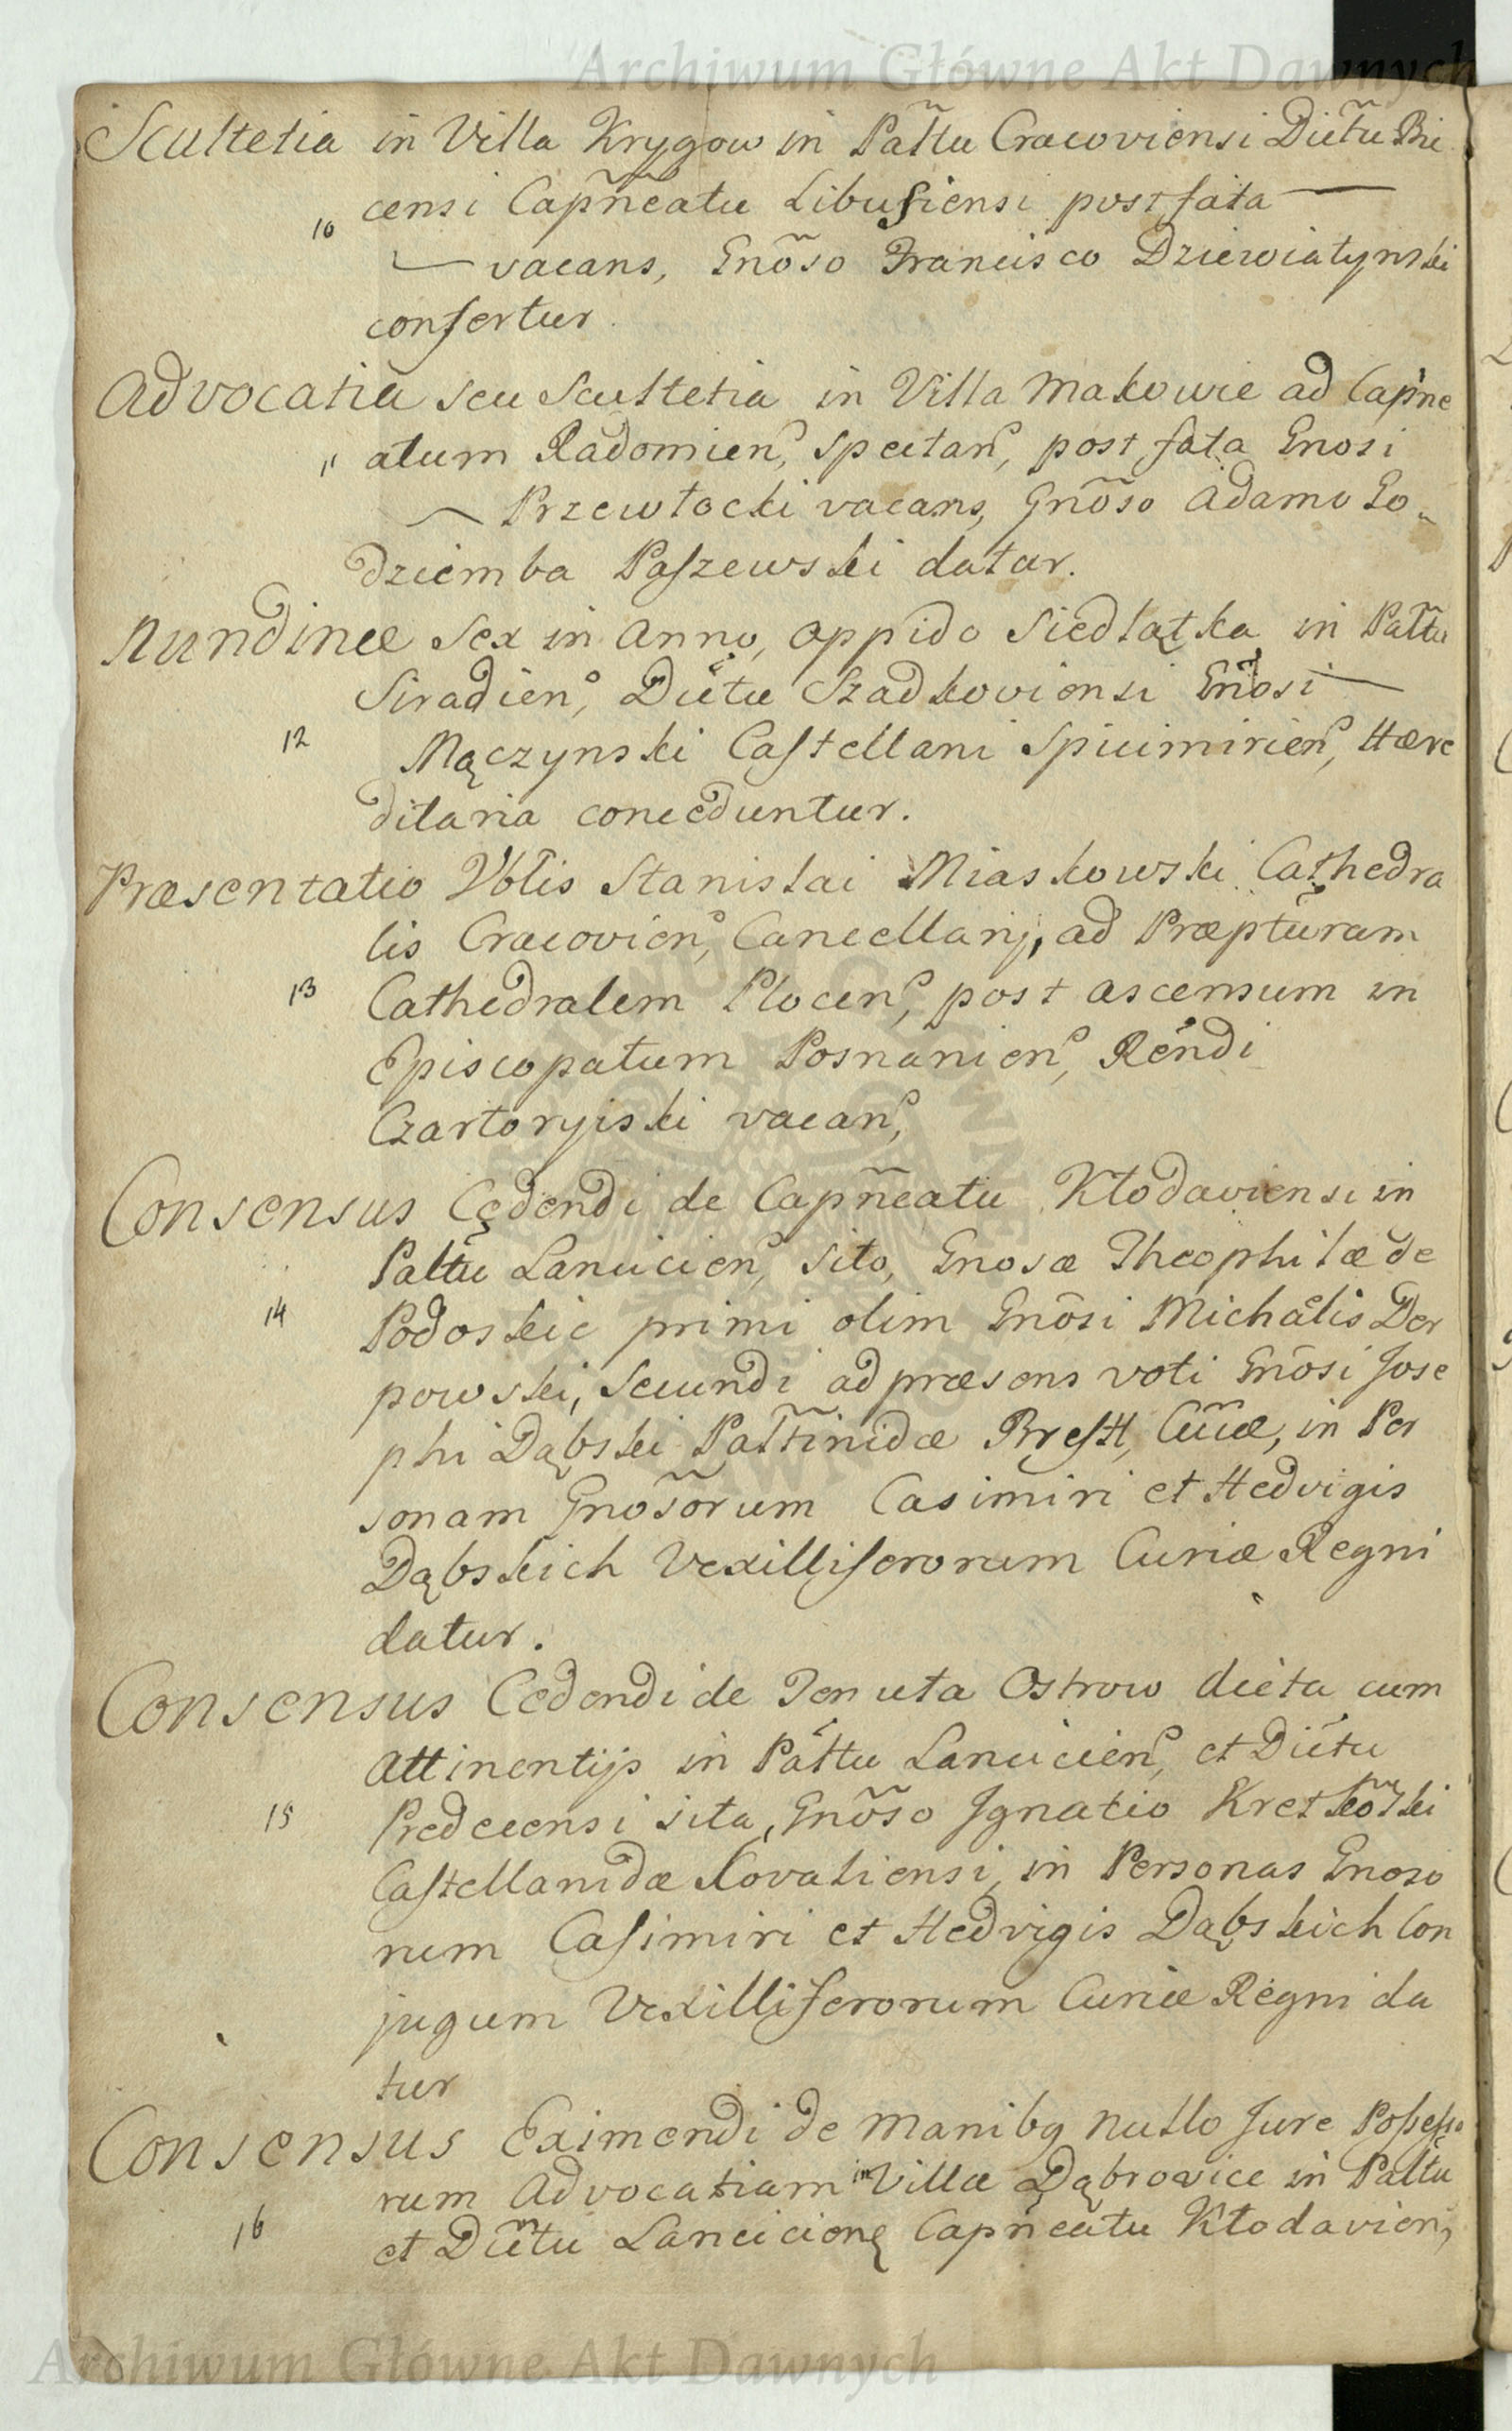 Archiwum Główne Akt Dawnych
Scultetia in Villa Krygow in Pałtu Cracoviensi Dictũ Bie
10 censi Capñeatu Libusiensi post fata —
— vacans, Gnõso Francisco Dziewiatynski
confertur.
Advocatia seu Scultetia in Villa Makowie ad Capne
11 atum Radomien, spectan, post fata Gnosi
— Przewłocki vacans, Gnõso Adamo Go-
dziemba Paszewski datur.
Nundinæ Sex in Anno, oppido Siedlątka in Pałtu
Siradien, Dictu Szadkoviensi Gnosi —
12 Mączynski Castellani Spicimirien, Hære
ditaria conceduntur.
Præsentatio Vblis Stanislai Miaskowski Cathedra
lis Cracovien, Cancellarij, ad Præpturam
13 Cathedralem Plocen, post ascensum in
Episcopatum Posnanien, Rendi
Czartoryiski vacan,
Consensus Cedendi de Capñeatu Kłodaviensi in
Paltu Lancicien, sito, Gnosæ Theophilæ de
14 Podoskie primi olim Gnõsi Michaelis Der
powski, Secundi ad præsens voti Gnõsi Jose
phi Dąbski Pałtinidæ Brest, Cuiæ, in Per
sonam Gnosõrum Casimiri et Hedvigis
Dąbskich Vexilliferorum Curiæ Regni
datur.
Consensus Cedendi de Tenuta Ostrow dicta cum
attinentijs in Pałtu Lancicien, et Dictu
15 Predecensi sita, Gnõso Ignatio Kretkowski
Castellanidæ Kovaliensi, in Personas Gnoso
rum Casimiri et Hedvigis Dąbskich Con
jugum Vexilliferorum Curiæ Regni da
tur
Consensus Eximendi de Manibq nullo Jure Possesso
rum Advocatiam in Villæ Dąbrovice in Paltu
16 et Dictu Lancicienę Capneatu Kłodavien,
Archiwum Główne Akt Dawnych